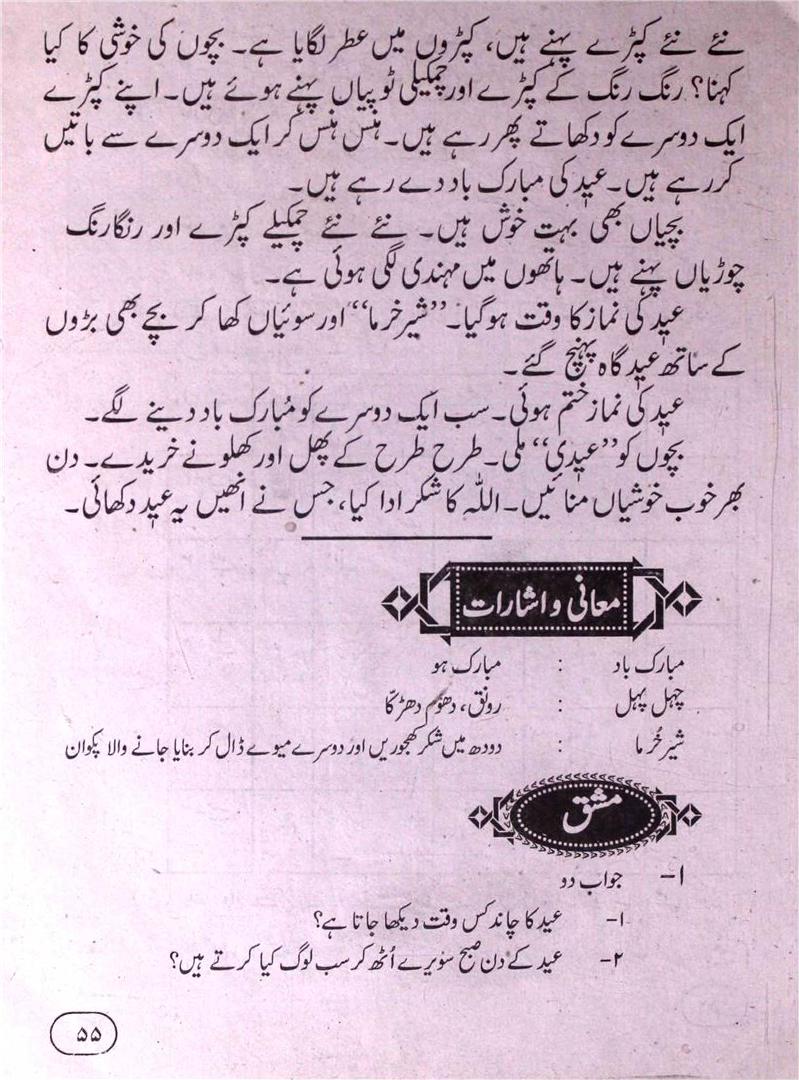 نئے نئے کپڑے پہنے ہیں، کپڑوں میں عطر لگایا ہے۔ بچوں کی خوشی کا کیا
کہنا؟ رنگ رنگ کے کپڑے اور چمکیلی ٹوپیاں پہنے ہوئے ہیں۔ اپنے کپڑے
ایک دوسرے کو دکھاتے پھر رہے ہیں۔ ہنس ہنس کر ایک دوسرے سے باتیں
کر رہے ہیں۔ عید کی مبارک باد دے رہے ہیں۔
بچیاں بھی بہت خوش ہیں۔ نئے نئے چمکیلے کپڑے اور رنگارنگ
چوڑیاں پہنے ہیں۔ ہاتھوں میں مہندی لگی ہوئی ہے۔
عید کی نماز کا وقت ہوگیا۔ ”شیر خرما“ اور سوئیاں کھا کر بچے بھی بڑوں
کے ساتھ عید گاہ پہنچ گئے۔
عید کی نماز ختم ہوئی۔ سب ایک دوسرے کو مُبارک باد دینے لگے۔
بچوں کو ”عیدی“ ملی۔ طرح طرح کے پھل اور کھلونے خریدے۔ دن
بھر خوب خوشیاں منائیں۔ اللہ کا شکر ادا کیا، جس نے انھیں یہ عید دکھائی۔
معانی و اشارات
مبارک باد : مبارک ہو
چہل پہل : رونق، دھوم دھڑکا
شیر خُرما : دودھ میں شکر کھجوریں اور دوسرے میوے ڈال کر بنایا جانے والا پکوان
مشق
۱- جواب دو
۱- عید کا چاند کس وقت دیکھا جاتا ہے؟
۲- عید کے دن صبح سویرے اُٹھ کر سب لوگ کیا کرتے ہیں؟
۵۵